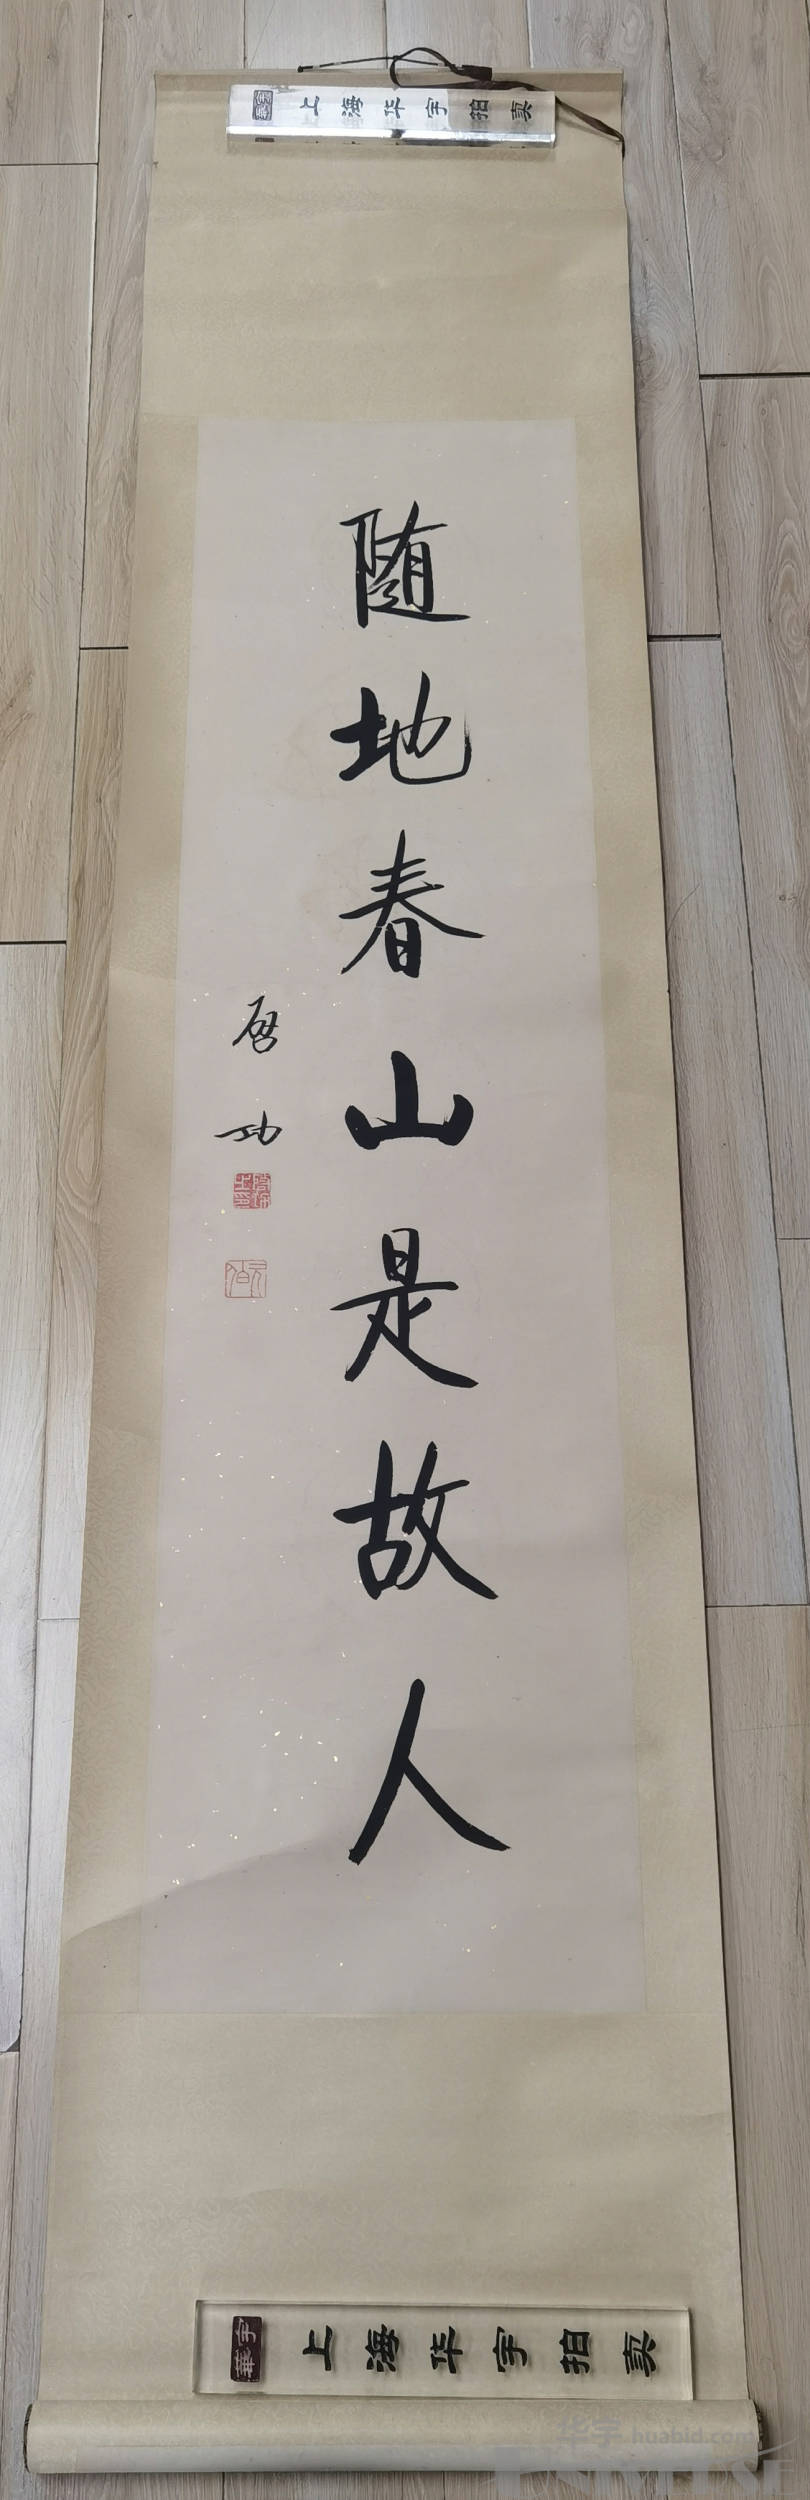 上海华宇拍卖
随地春山是故人
启功
上海华宇拍卖
華宇
华宇 huabid.com